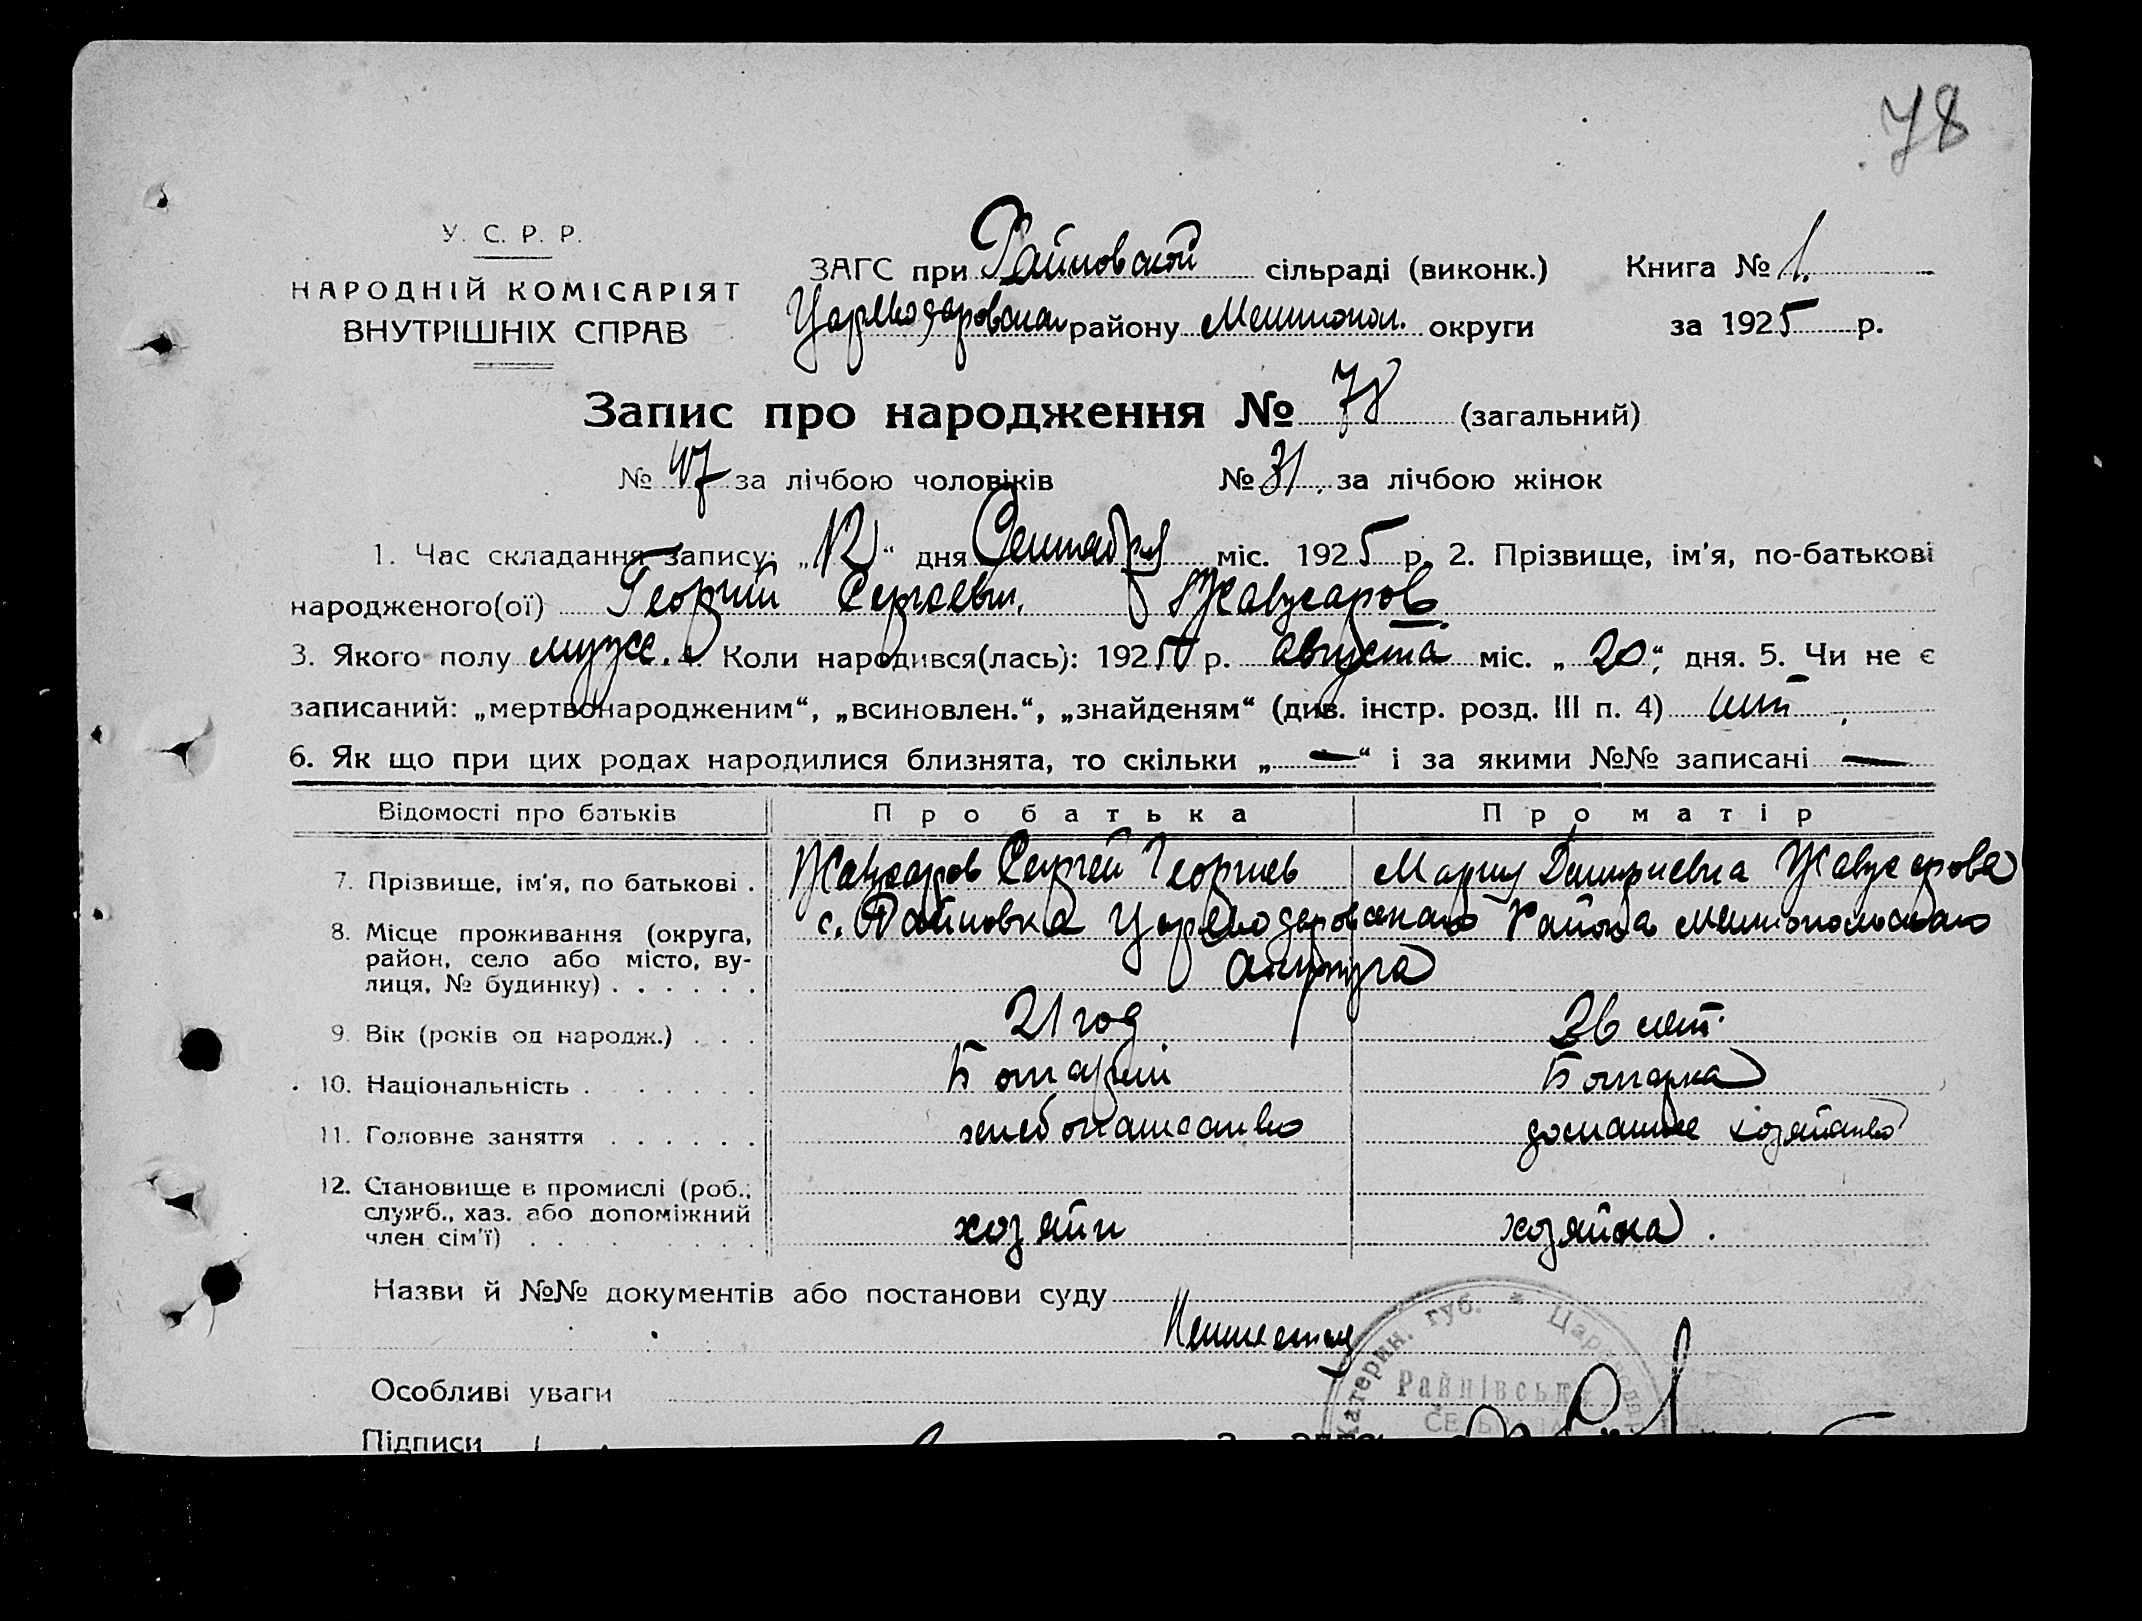 78
У. С. Р. Р.
НАРОДНІЙ КОМІСАРІЯТ
ВНУТРІШНІХ СПРАВ
ЗАГС при Райновской сільраді (виконк.) Книга № 1.
району Мелитопол. округи за 1925 р.
Запис про народження № 78 (загальний)
№ 47 за лічбою чоловіків № 31 за лічбою жінок
1. Час складання запису: „12“ дня Сентября міс. 1925 р. 2. Прізвище, ім'я, по-батькові
народженого(ої) Георгий Сергеевич
3. Якого полу муж. 4. Коли народився(лась): 1925 р. августа міс. „20“ дня. 5. Чи не є
записаний: „мертвонародженим“, „всиновлен.“, „знайденям“ (див. інстр. розд. III п. 4) нет
6. Як що при цих родах народилися близнята, то скільки „—“ і за якими №№ записані —
Відомості про батьків Про батька Про матір
7. Прізвище, ім'я, по батькові . Сергей Георгиев Мария
8. Місце проживання (округа, район, село або місто, вулиця, № будинку) . . . . . . с. Райновка района Мелитопольского
округа
9. Вік (років од народж.) . . . 21 год 26 лет.
10. Національність . . . . . . . Болгарин Болгарка
11. Головне заняття . . . . . . хлебопашество домашнее хозяйство
12. Становище в промислі (роб., служб., хаз. або допоміжний член сім'ї) . . . . . . хозяин хозяйка.
Назви й №№ документів або постанови суду
Катерин. губ. * Цар
Райнівська
Особливі уваги
Підписи